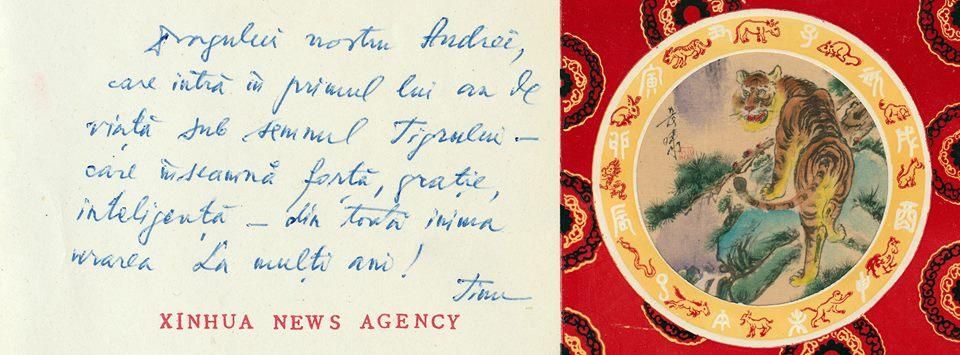 Dragului nostru Andrei,
care intră în primul lui an de
viață sub semnul Tigrului –
care înseamnă forță, grație,
inteligență – din toată inima
urarea La mulți ani!
XINHUA NEWS AGENCY
子
丑
寅
卯
辰
巳
午
未
申
酉
戌
亥